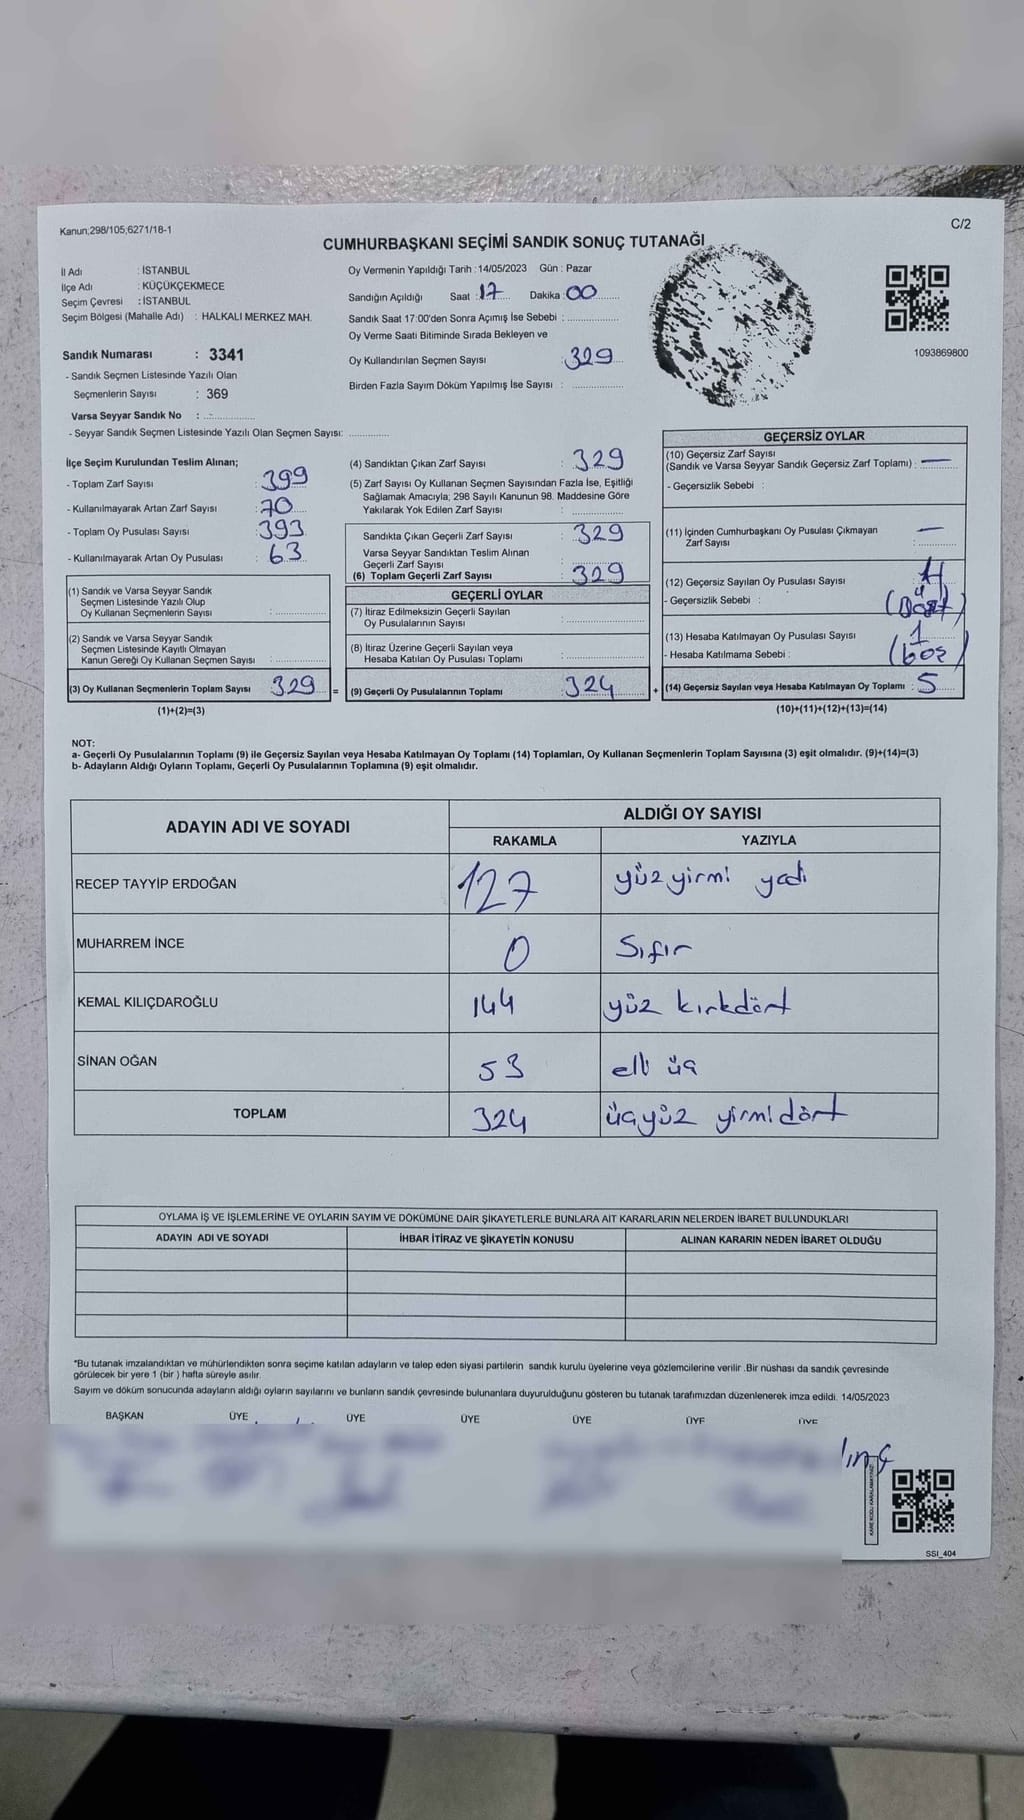 Kanun;298/105;6271/18-1
C/2
CUMHURBAŞKANI SEÇİMİ SANDIK SONUÇ TUTANAĞI
İl Adı : İSTANBUL
İlçe Adı : KÜÇÜKÇEKMECE
Seçim Çevresi : İSTANBUL
Seçim Bölgesi (Mahalle Adı) : HALKALI MERKEZ MAH.
Sandık Numarası : 3341
- Sandık Seçmen Listesinde Yazılı Olan
Seçmenlerin Sayısı : 369
Varsa Seyyar Sandık No :
- Seyyar Sandık Seçmen Listesinde Yazılı Olan Seçmen Sayısı:
Oy Vermenin Yapıldığı Tarih : 14/05/2023 Gün : Pazar
Sandığın Açıldığı Saat : 17 Dakika : 00
Sandık Saat 17:00'den Sonra Açımış İse Sebebi :
Oy Verme Saati Bitiminde Sırada Bekleyen ve
Oy Kullandırılan Seçmen Sayısı : 329
Birden Fazla Sayım Döküm Yapılmış İse Sayısı :
1093869800
İlçe Seçim Kurulundan Teslim Alınan;
- Toplam Zarf Sayısı : 399
- Kullanılmayarak Artan Zarf Sayısı : 70
- Toplam Oy Pusulası Sayısı : 393
- Kullanılmayarak Artan Oy Pusulası : 63
(1) Sandık ve Varsa Seyyar Sandık
Seçmen Listesinde Yazılı Olup
Oy Kullanan Seçmenlerin Sayısı :
(2) Sandık ve Varsa Seyyar Sandık
Seçmen Listesinde Kayıtlı Olmayan
Kanun Gereği Oy Kullanan Seçmen Sayısı :
(3) Oy Kullanan Seçmenlerin Toplam Sayısı : 329 =
(1)+(2)=(3)
(4) Sandıktan Çıkan Zarf Sayısı : 329
(5) Zarf Sayısı Oy Kullanan Seçmen Sayısından Fazla İse, Eşitliği
Sağlamak Amacıyla; 298 Sayılı Kanunun 98. Maddesine Göre
Yakılarak Yok Edilen Zarf Sayısı :
Sandıkta Çıkan Geçerli Zarf Sayısı : 329
Varsa Seyyar Sandıktan Teslim Alınan
Geçerli Zarf Sayısı :
(6) Toplam Geçerli Zarf Sayısı : 329
GEÇERLİ OYLAR
(7) İtiraz Edilmeksizin Geçerli Sayılan
Oy Pusulalarının Sayısı :
(8) İtiraz Üzerine Geçerli Sayılan veya
Hesaba Katılan Oy Pusulası Toplamı :
(9) Geçerli Oy Pusulalarının Toplamı : 324 +
GEÇERSİZ OYLAR
(10) Geçersiz Zarf Sayısı
(Sandık ve Varsa Seyyar Sandık Geçersiz Zarf Toplamı) : —
- Geçersizlik Sebebi :
(11) İçinden Cumhurbaşkanı Oy Pusulası Çıkmayan
Zarf Sayısı : —
(12) Geçersiz Sayılan Oy Pusulası Sayısı : 4
- Geçersizlik Sebebi : (Dört)
(13) Hesaba Katılmayan Oy Pusulası Sayısı : 1
- Hesaba Katılmama Sebebi : (boş)
(14) Geçersiz Sayılan veya Hesaba Katılmayan Oy Toplamı : 5
(10)+(11)+(12)+(13)=(14)
NOT:
a- Geçerli Oy Pusulalarının Toplamı (9) ile Geçersiz Sayılan veya Hesaba Katılmayan Oy Toplamı (14) Toplamları, Oy Kullanan Seçmenlerin Toplam Sayısına (3) eşit olmalıdır. (9)+(14)=(3)
b- Adayların Aldığı Oyların Toplamı, Geçerli Oy Pusulalarının Toplamına (9) eşit olmalıdır.
ADAYIN ADI VE SOYADI ALDIĞI OY SAYISI
RAKAMLA YAZIYLA
RECEP TAYYİP ERDOĞAN 127 yüzyirmi yedi
MUHARREM İNCE 0 Sıfır
KEMAL KILIÇDAROĞLU 144 yüz kırkdört
SİNAN OĞAN 53 elli üç
TOPLAM 324 üçyüz yirmidört
OYLAMA İŞ VE İŞLEMLERİNE VE OYLARIN SAYIM VE DÖKÜMÜNE DAİR ŞİKAYETLERLE BUNLARA AİT KARARLARIN NELERDEN İBARET BULUNDUKLARI
ADAYIN ADI VE SOYADI İHBAR İTİRAZ VE ŞİKAYETİN KONUSU ALINAN KARARIN NEDEN İBARET OLDUĞU
*Bu tutanak imzalandıktan ve mühürlendikten sonra seçime katılan adayların ve talep eden siyasi partilerin sandık kurulu üyelerine veya gözlemcilerine verilir .Bir nüshası da sandık çevresinde
görülecek bir yere 1 (bir ) hafta süreyle asılır.
Sayım ve döküm sonucunda adayların aldığı oyların sayılarını ve bunların sandık çevresinde bulunanlara duyurulduğunu gösteren bu tutanak tarafımızdan düzenlenerek imza edildi. 14/05/2023
BAŞKAN ÜYE ÜYE ÜYE ÜYE ÜYE ÜYE
KARE KODU KARALAMAYINIZ!
SSI_404